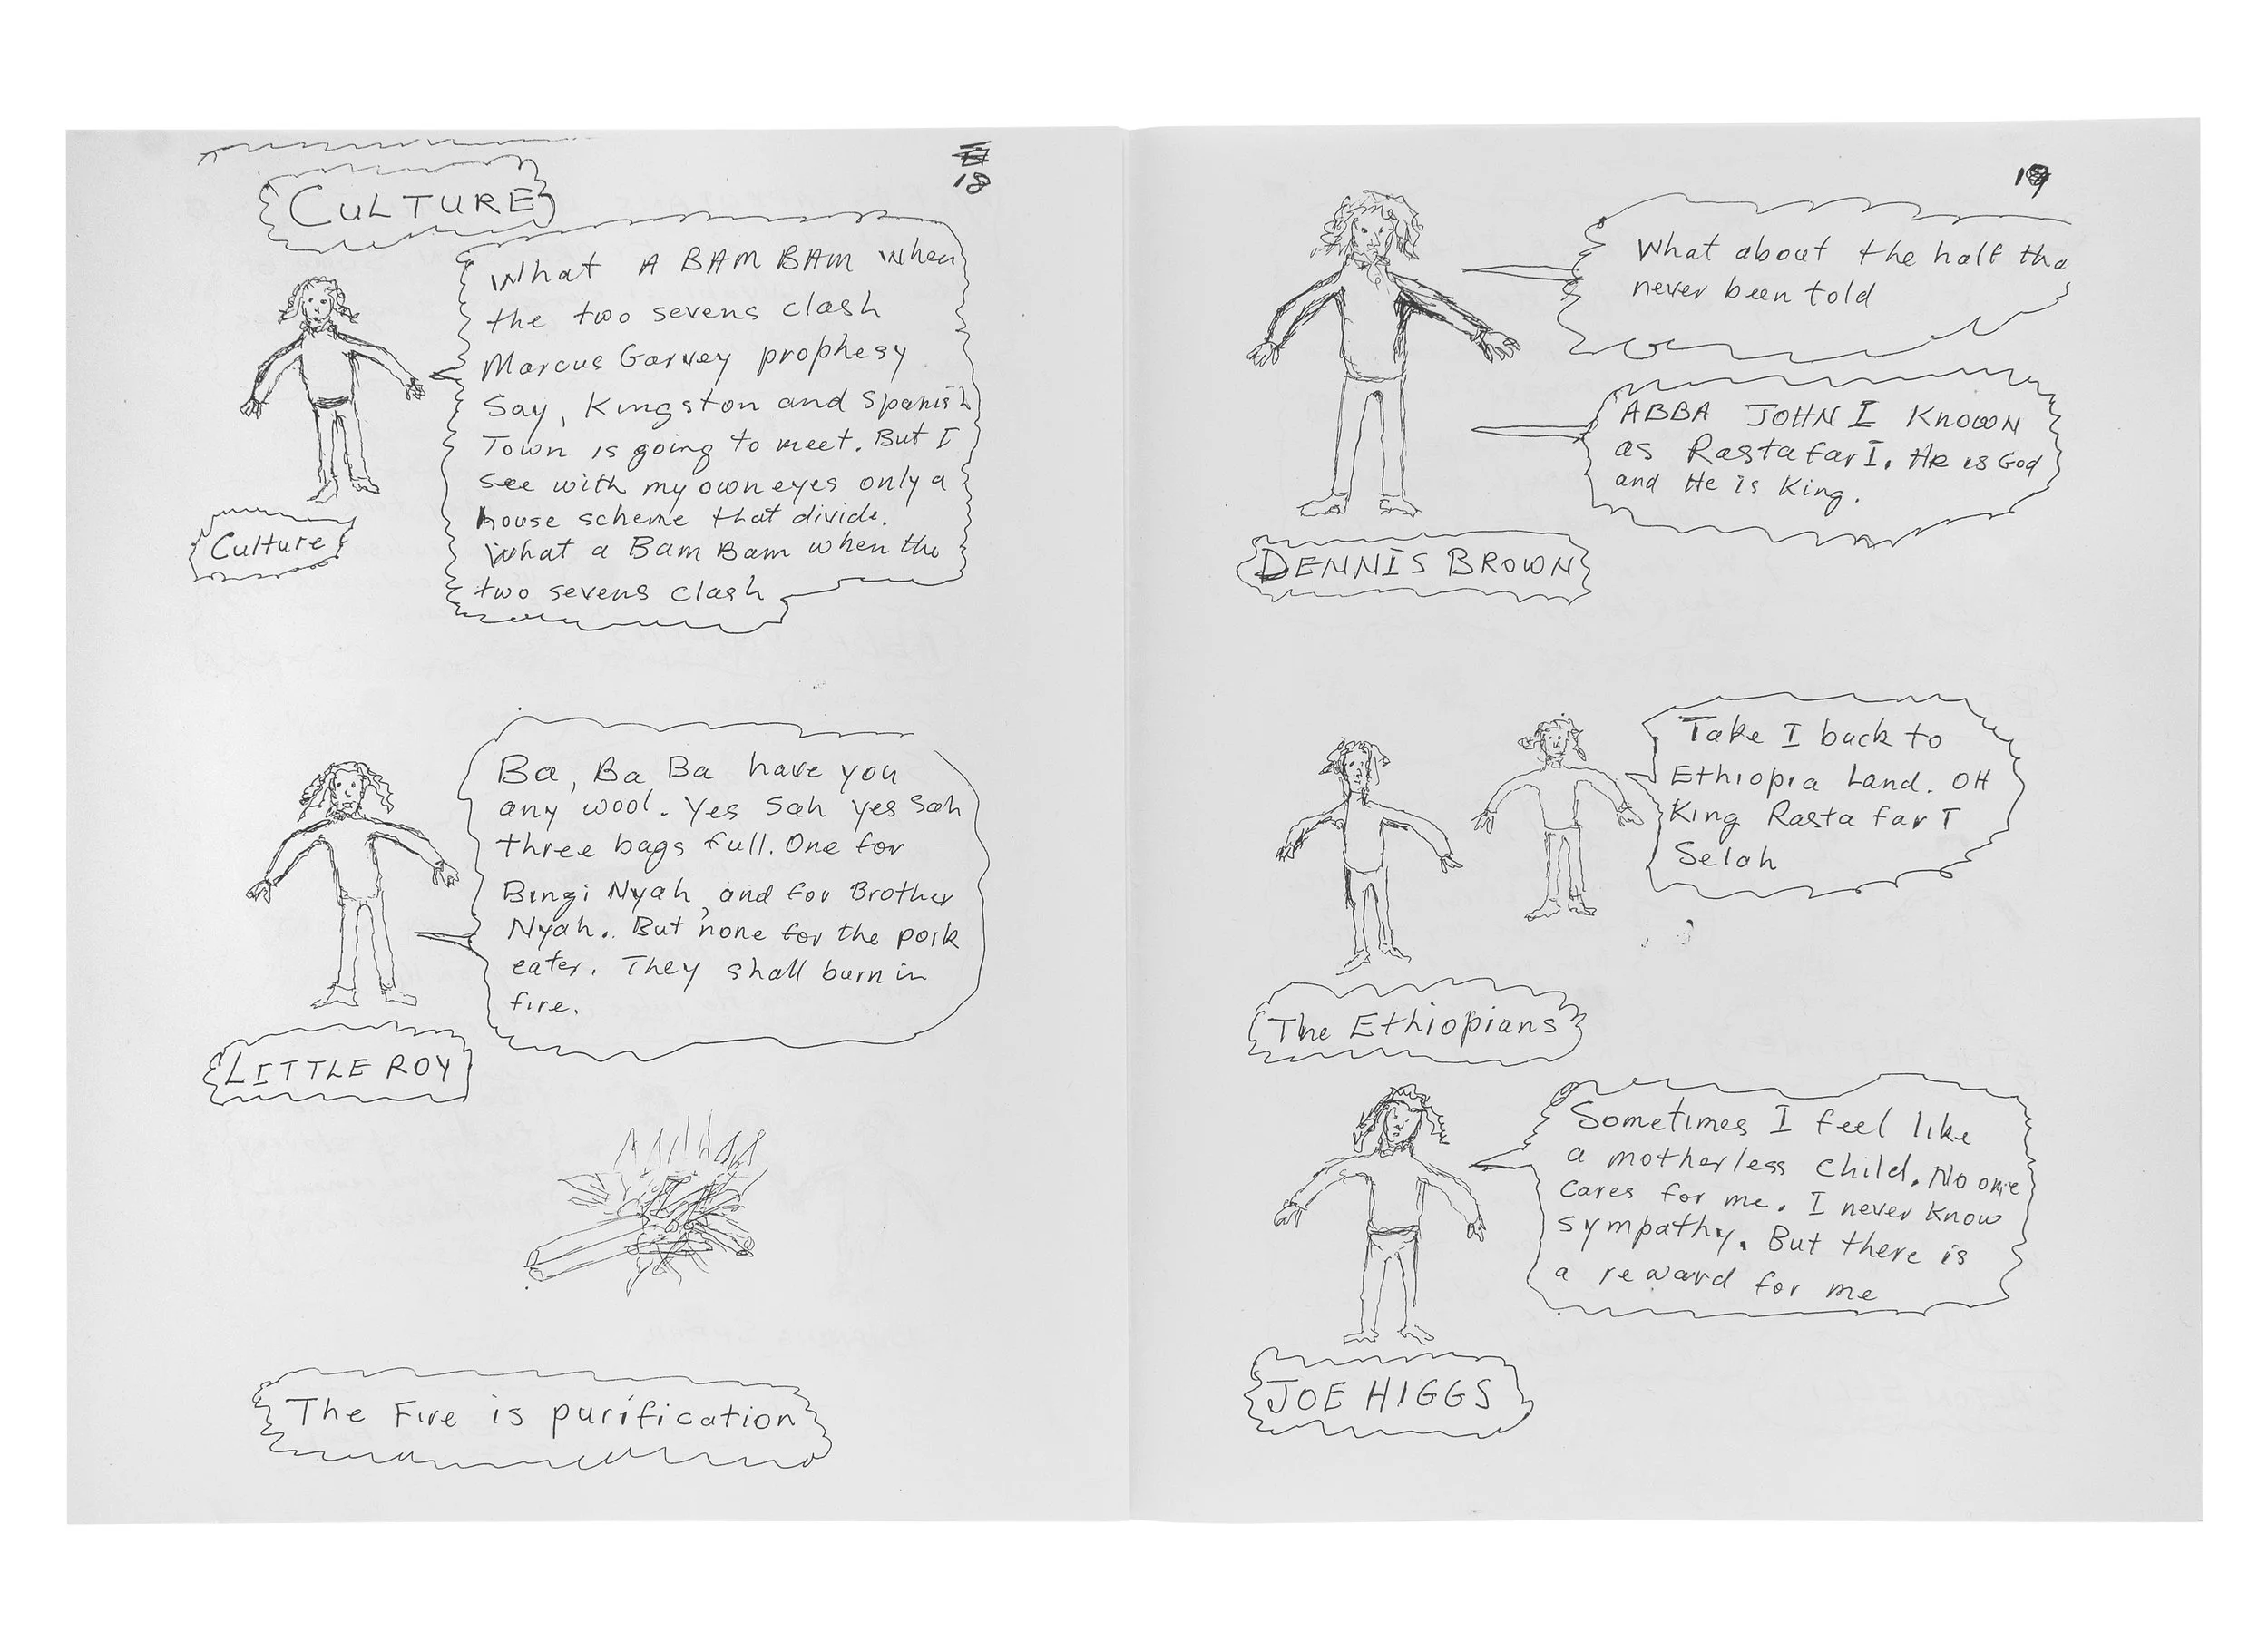 CULTURE
18
What A BAM BAM when
the two sevens clash
Marcus Garvey prophesy
Say, Kingston and Spanish
Town is going to meet. But I
see with my own eyes only a
house scheme that divide.
What a Bam Bam when the
two sevens clash
Culture
Ba, Ba Ba have you
any wool. Yes Sah yes Sah
three bags full. One for
Bingi Nyah, and for Brother
Nyah. But none for the pork
eater. They shall burn in
fire.
LITTLE ROY
The Fire is purification
19
What about the half tha
never been told
ABBA JOHN I KNOWN
as Rasta far I. He is God
and He is King.
DENNIS BROWN
Take I back to
Ethiopia Land. OH
King Rasta far I
Selah
The Ethiopians
Sometimes I feel like
a motherless child. No one
cares for me. I never know
sympathy. But there is
a reward for me
JOE HIGGS